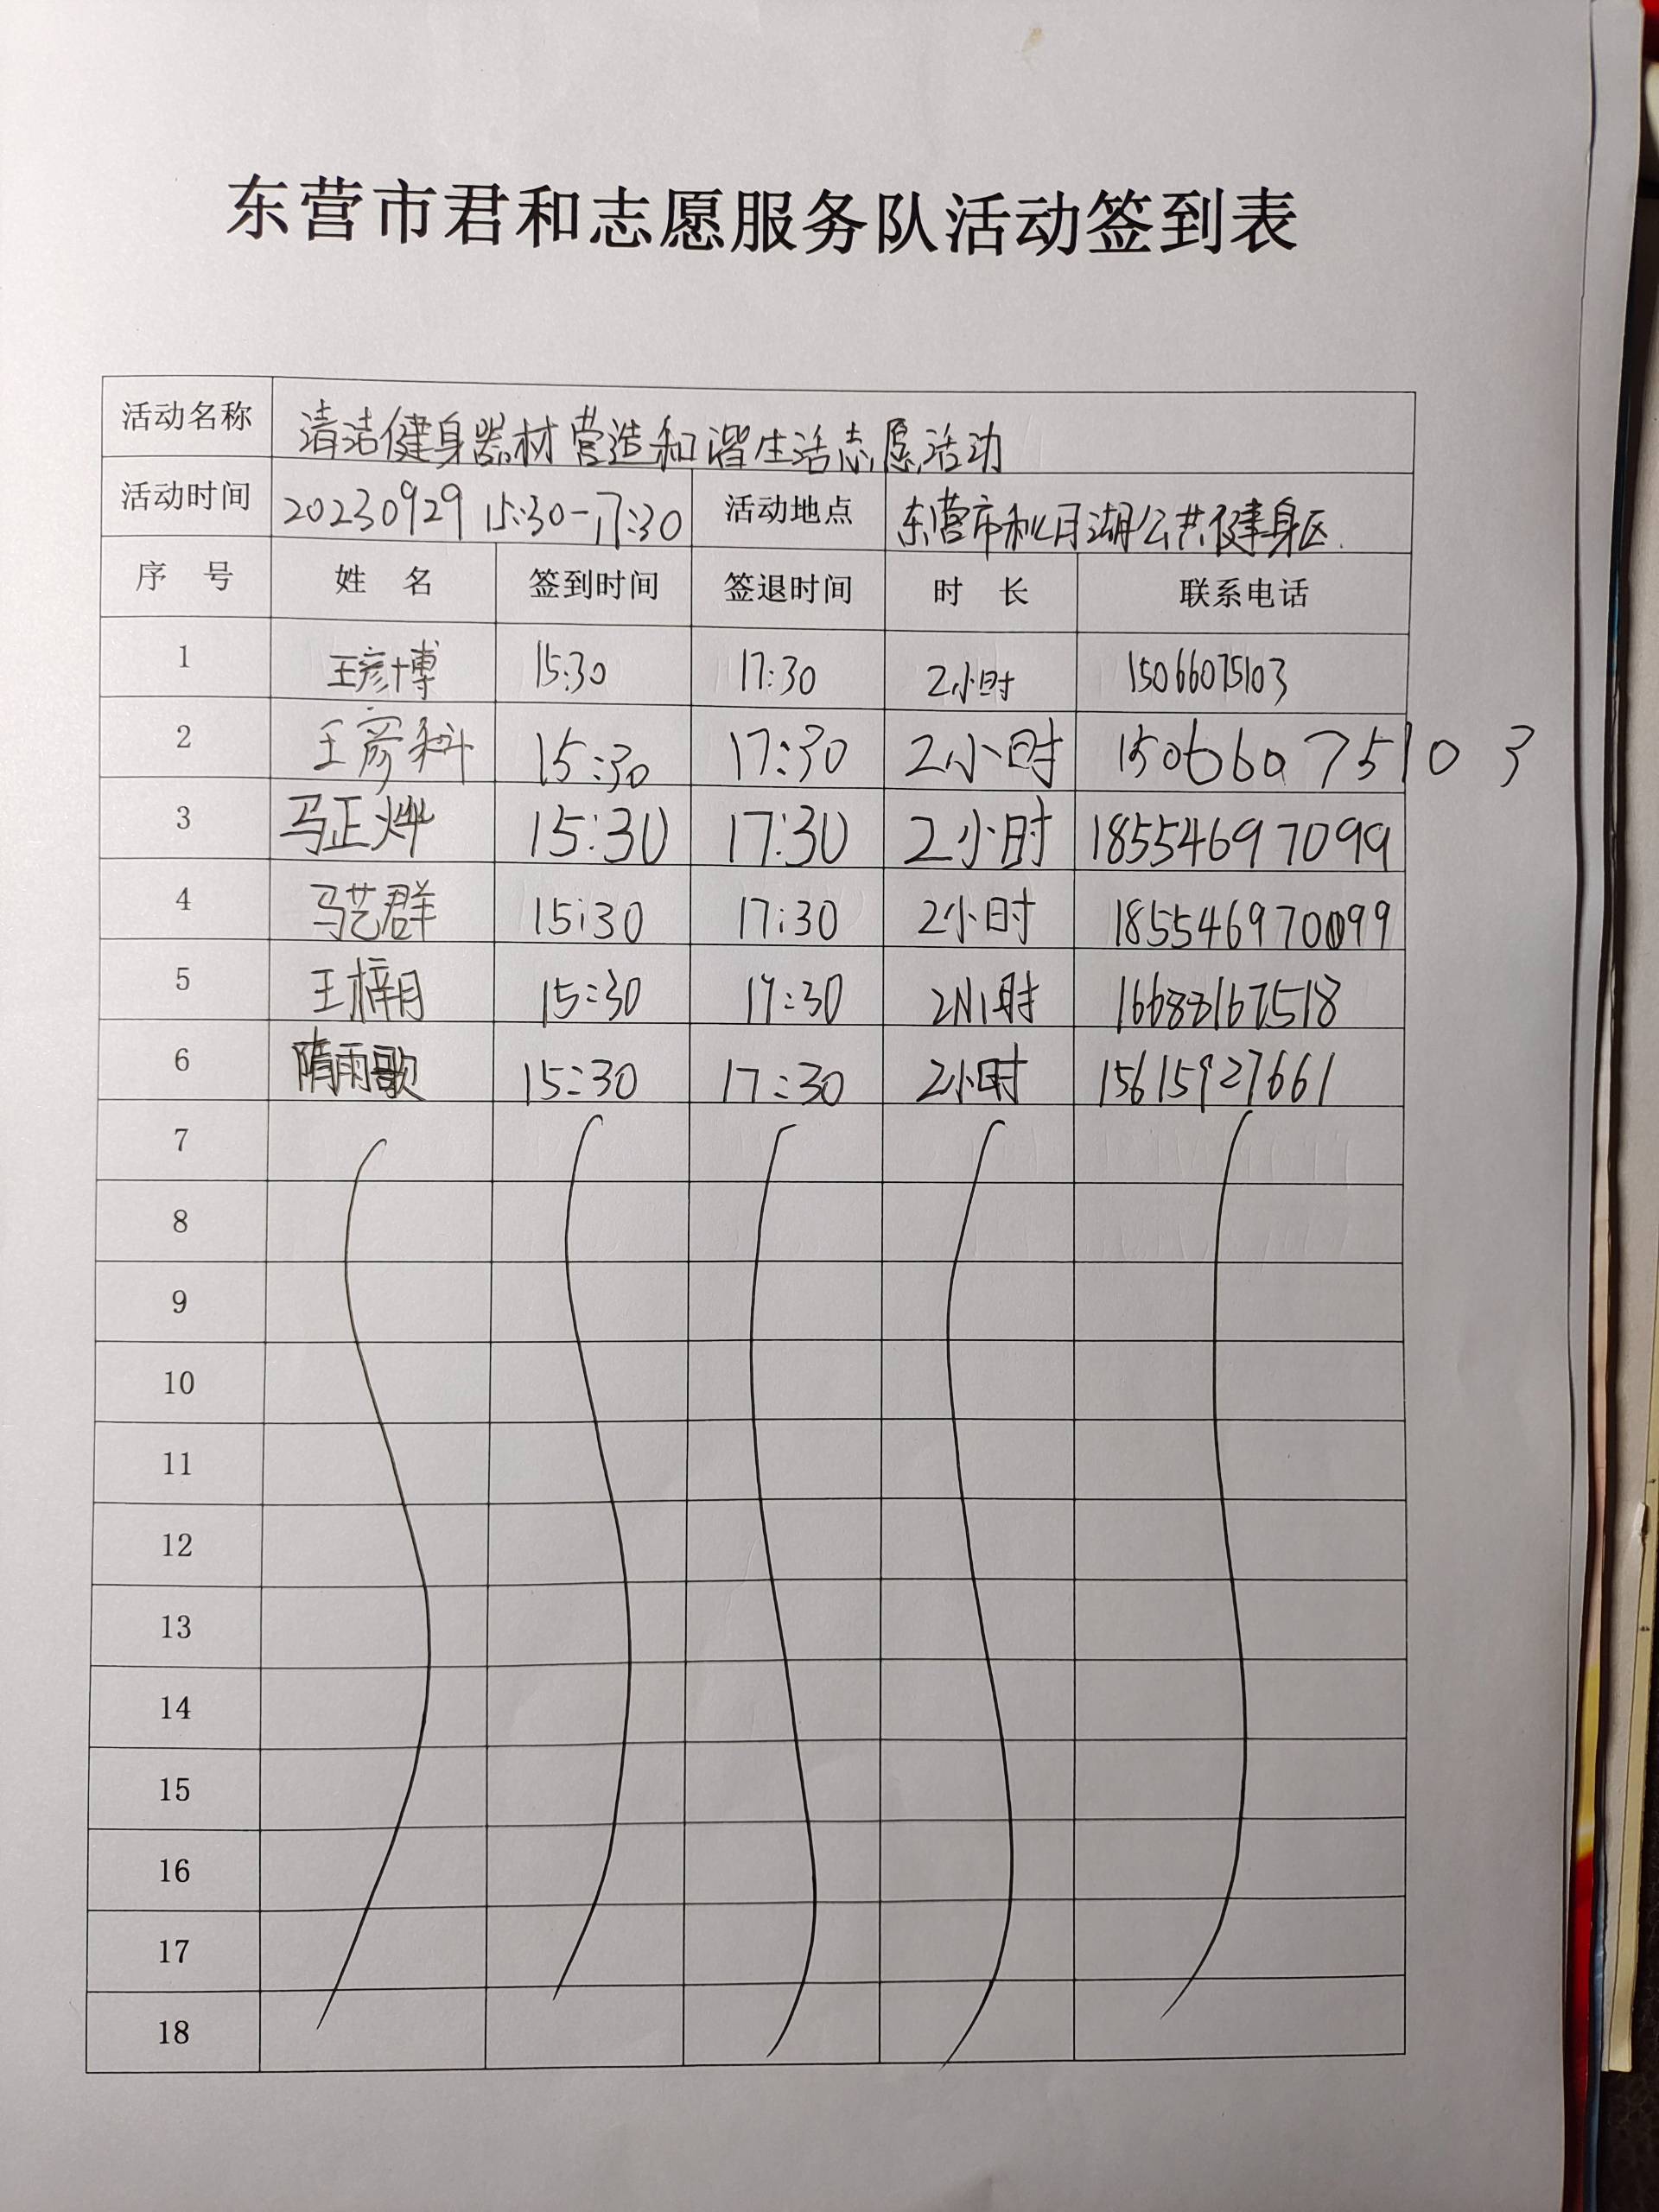 东营市君和志愿服务队活动签到表
活动名称 清洁健身器材营造和谐生活志愿活动
活动时间 20230929 15:30-17:30 活动地点 东营市秋月湖公共健身区.
序 号 姓 名 签到时间 签退时间 时 长 联系电话
1 王彦博 15:30 17:30 2小时 15066075103
2 王彦科 15:30 17:30 2小时 15066075103
3 马正烨 15:30 17:30 2小时 18554697099
4 马艺群 15:30 17:30 2小时 18554697099
5 王梓月 15:30 17:30 2小时 16688167518
6 隋雨歌 15:30 17:30 2小时 15615927661
7
8
9
10
11
12
13
14
15
16
17
18